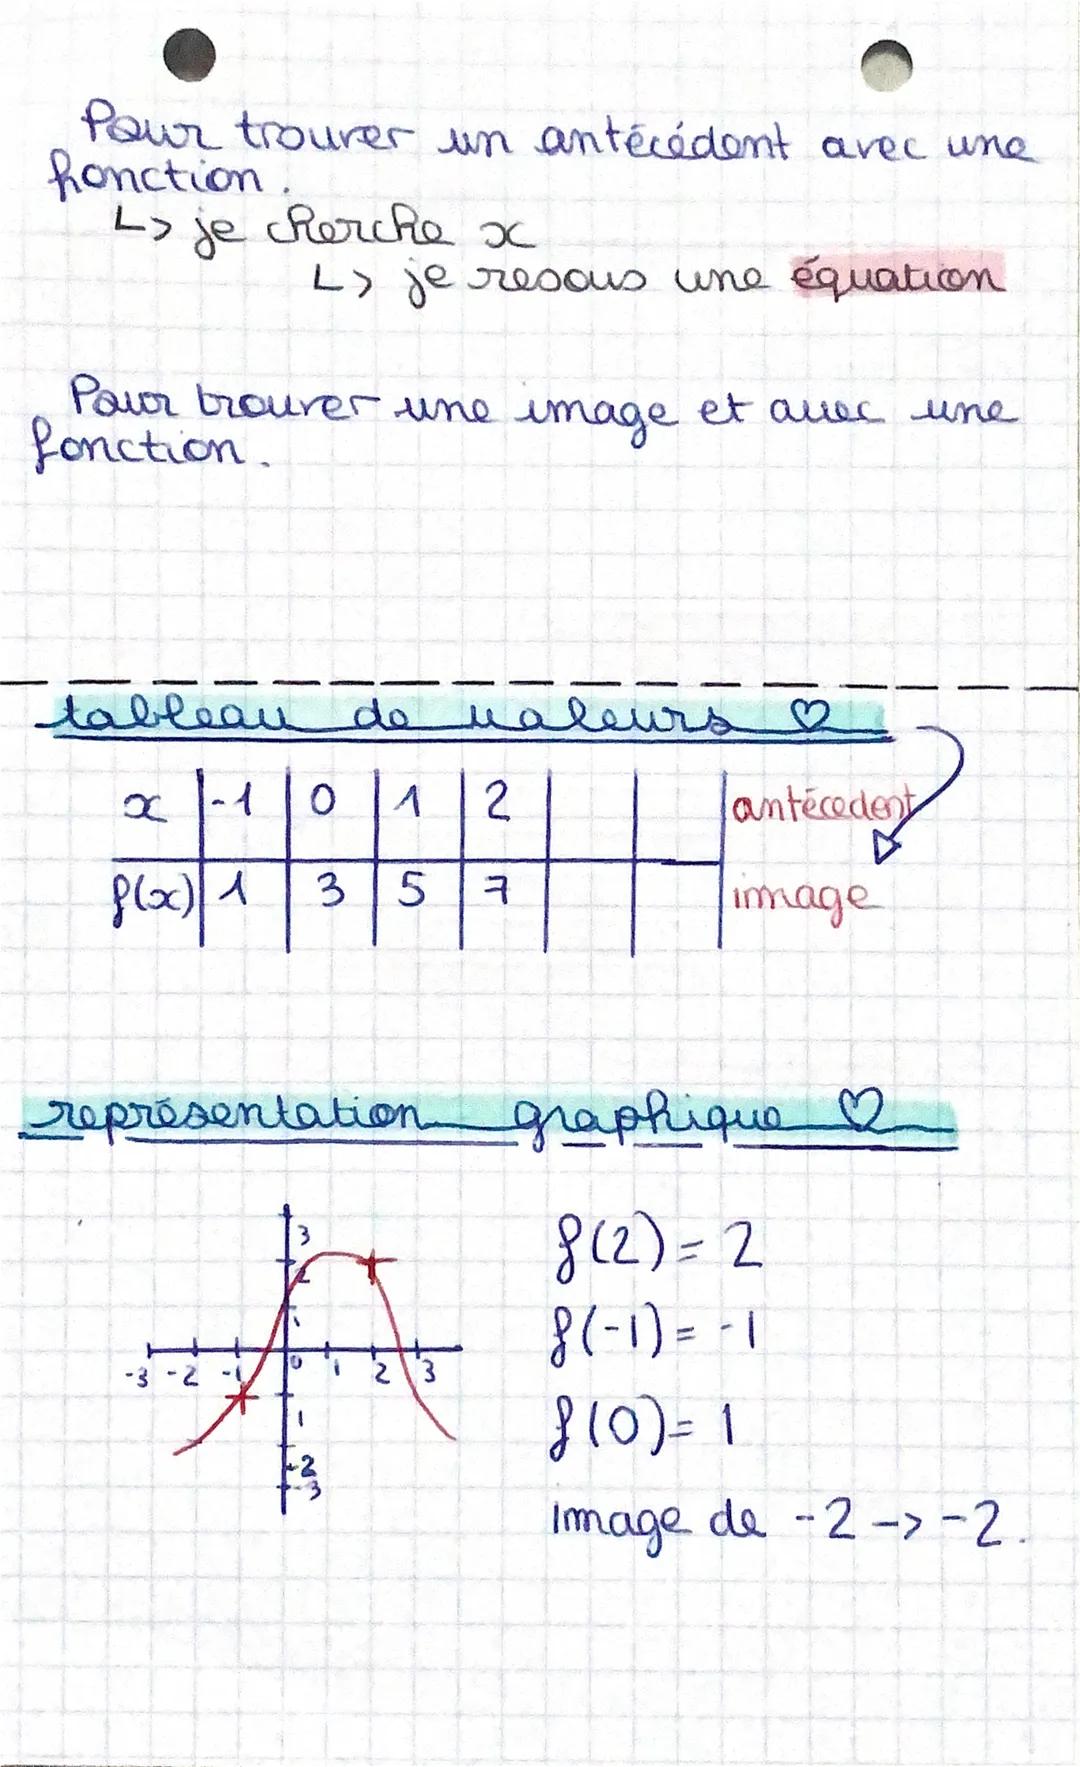 Pour trouver un antécédent avec une
fonction.
↳ je cherche x
↳ je resous une équation
Pour trouver une image et avec une
fonction.
tableau de valeurs ♡
x | -1 | 0 | 1 | 2 | | | antécedent
f(x) | 1 | 3 | 5 | 7 | | | image
représentation graphique ♡
3
2
1
-3 -2 -1 0 1 2 3
1
-2
-3
f(2) = 2
f(-1) = -1
f(0) = 1
image de -2 -> -2.